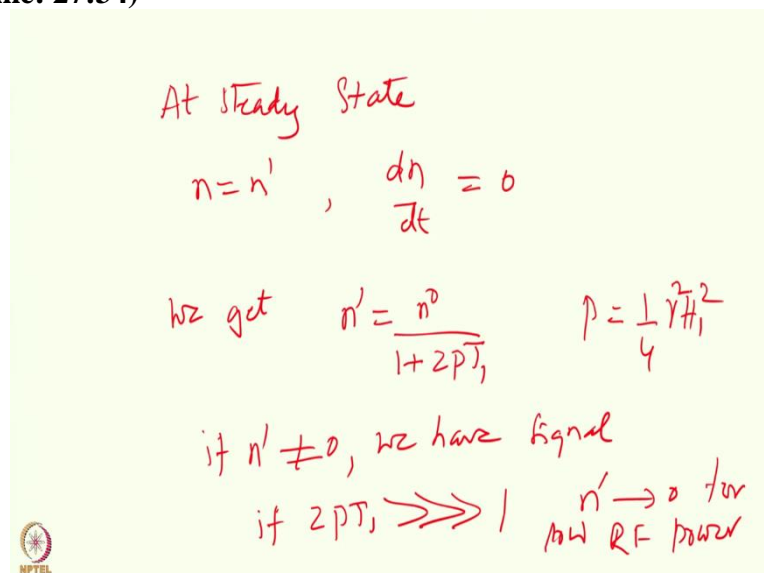 At Steady State
n = n' , dn/dt = 0
We get n' = n⁰/(1+2pT₁) p = 1/4 γ²H₁²
if n' ≠ 0, we have signal
if 2pT₁ >>> 1 n' → 0 for
RF power
NPTEL